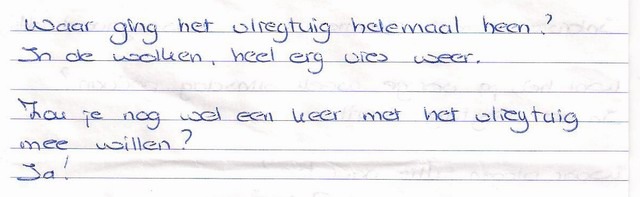 Waar ging het vliegtuig helemaal heen?
In de wolken, heel erg vies weer.
Zou je nog wel een keer met het vliegtuig
mee willen?
Ja!